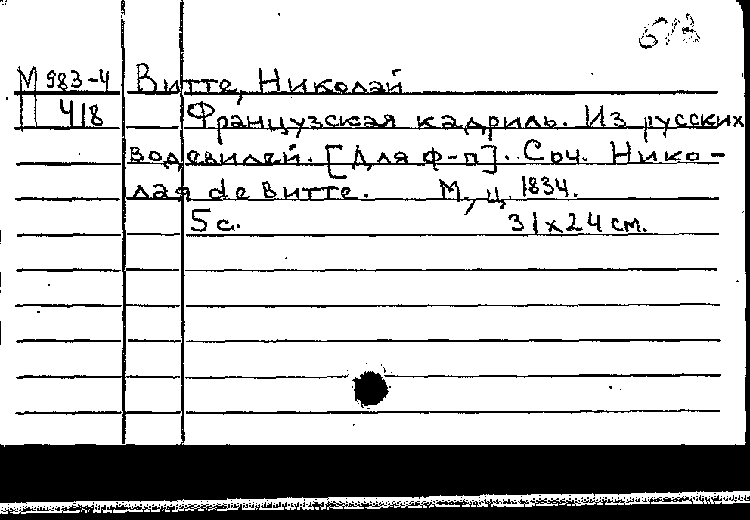 М 983-4 Витте, Николай
П 418 Французская кадриль. Из русских
водевилей. [Для ф-п]. Соч. Нико-
лая de Витте. М., ц. 1834.
5 с. 31х24 см.